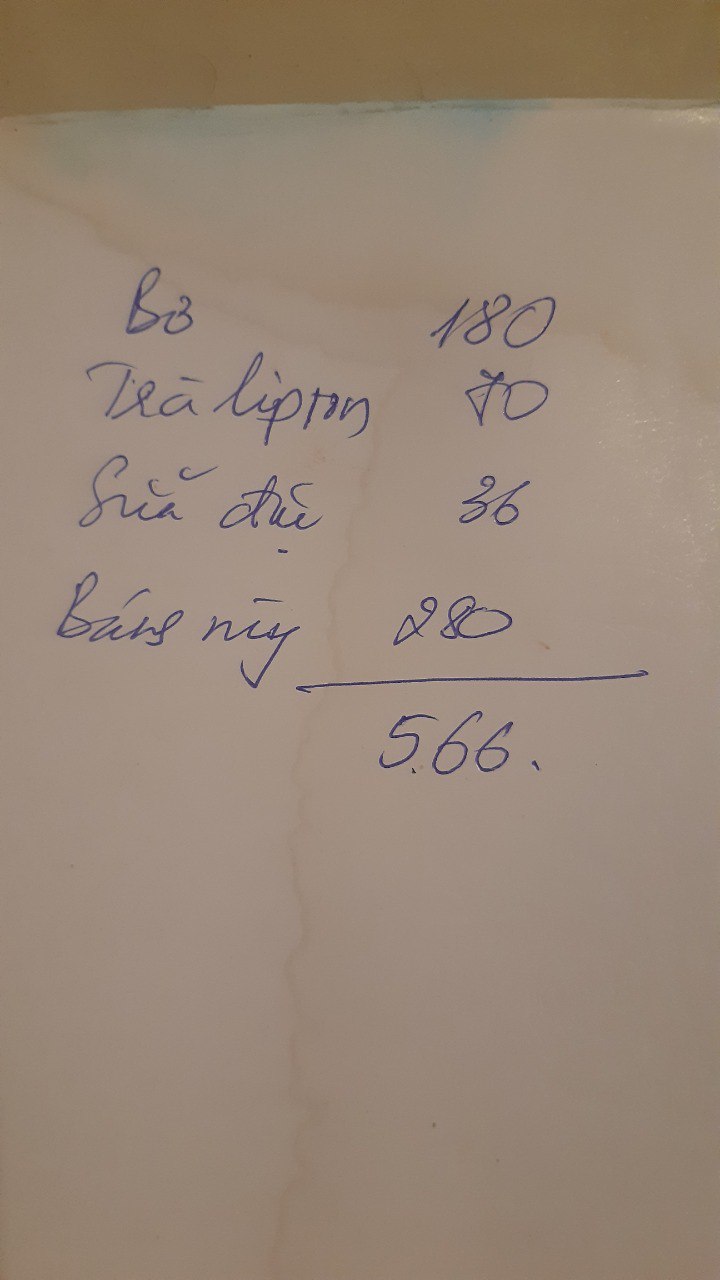 Bơ 180
Trà lipton 70
Sữa đặc 36
Bánh mỳ 280
566.